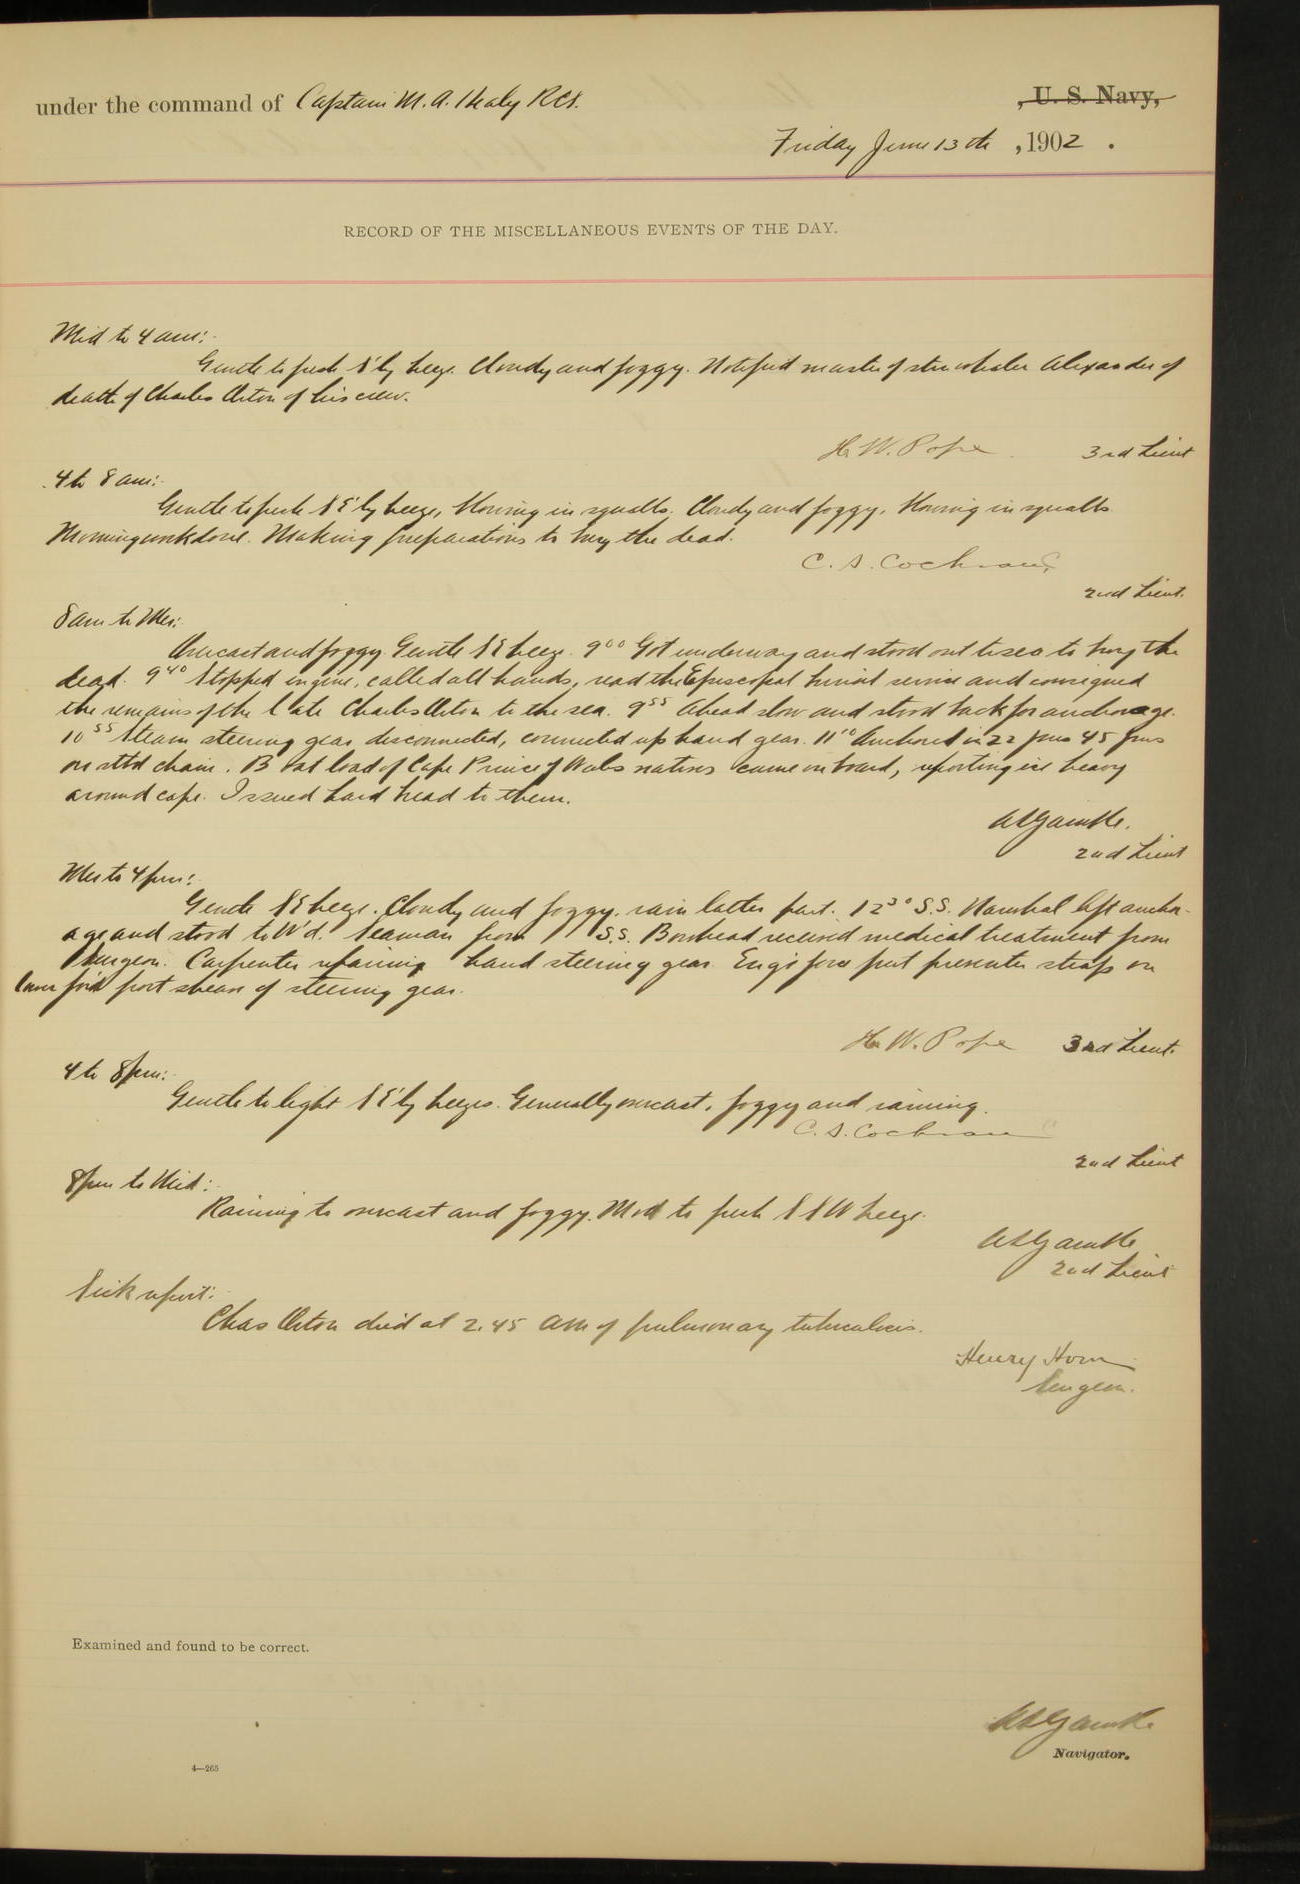 under the command of Captain M. A. Healy RCS. , U. S. Navy,
Friday June 13th , 1902 .
RECORD OF THE MISCELLANEOUS EVENTS OF THE DAY.
Mid to 4 am:
Gentle to fresh S'ly breeze. Cloudy and foggy. Notified master of stm whaler Alexander of
death of Charles Orton of his crew.
H. W. Pope. 3rd Lieut
4 to 8 am:
Gentle to fresh SE'ly breeze, blowing in squalls. Cloudy and foggy, blowing in squalls
Morning work done. Making preparations to bury the dead.
C. S. Cochran,
2nd Lieut.
8 am to Mer:
Overcast and foggy. Gentle SE breeze. 9 00 Got underway and stood out to sea to bury the
dead. 9 40 Stopped engine, called all hands, read the Episcopal burial service and consigned
the remains of the late Charles Orton to the sea. 9 55 Ahead slow and stood back for anchorage.
10 55 Steam steering gear disconnected, connected up hand gear. 11 10 Anchored in 22 fms 45 fms
on stbd chain. Boat load of Cape Prince of Wales natives came on board, reporting ice heavy
around cape. Issued hard bread to them.
2nd Lieut
Mer to 4 pm:
Gentle SE breeze. Cloudy and foggy, rain latter part. 12 30 S.S. left anchor-
age and stood to W'd. Seaman from S.S. Bowhead received medical treatment from
Surgeon. Carpenter repairing hand steering gear. Eng's force put strap on
port of steering gear.
H. W. Pope 3rd Lieut.
4 to 8 pm:
Gentle to light SE'ly breezes. Generally overcast, foggy and raining.
C. S. Cochran
2nd Lieut
8 pm to Mid:
Raining to overcast and foggy. Mod to fresh SSW breeze.
2nd Lieut
Sick report:
Chas Orton died at 2.45 am of pulmonary tuberculosis.
Henry Horn
Surgeon.
Examined and found to be correct.
Navigator.
4—265